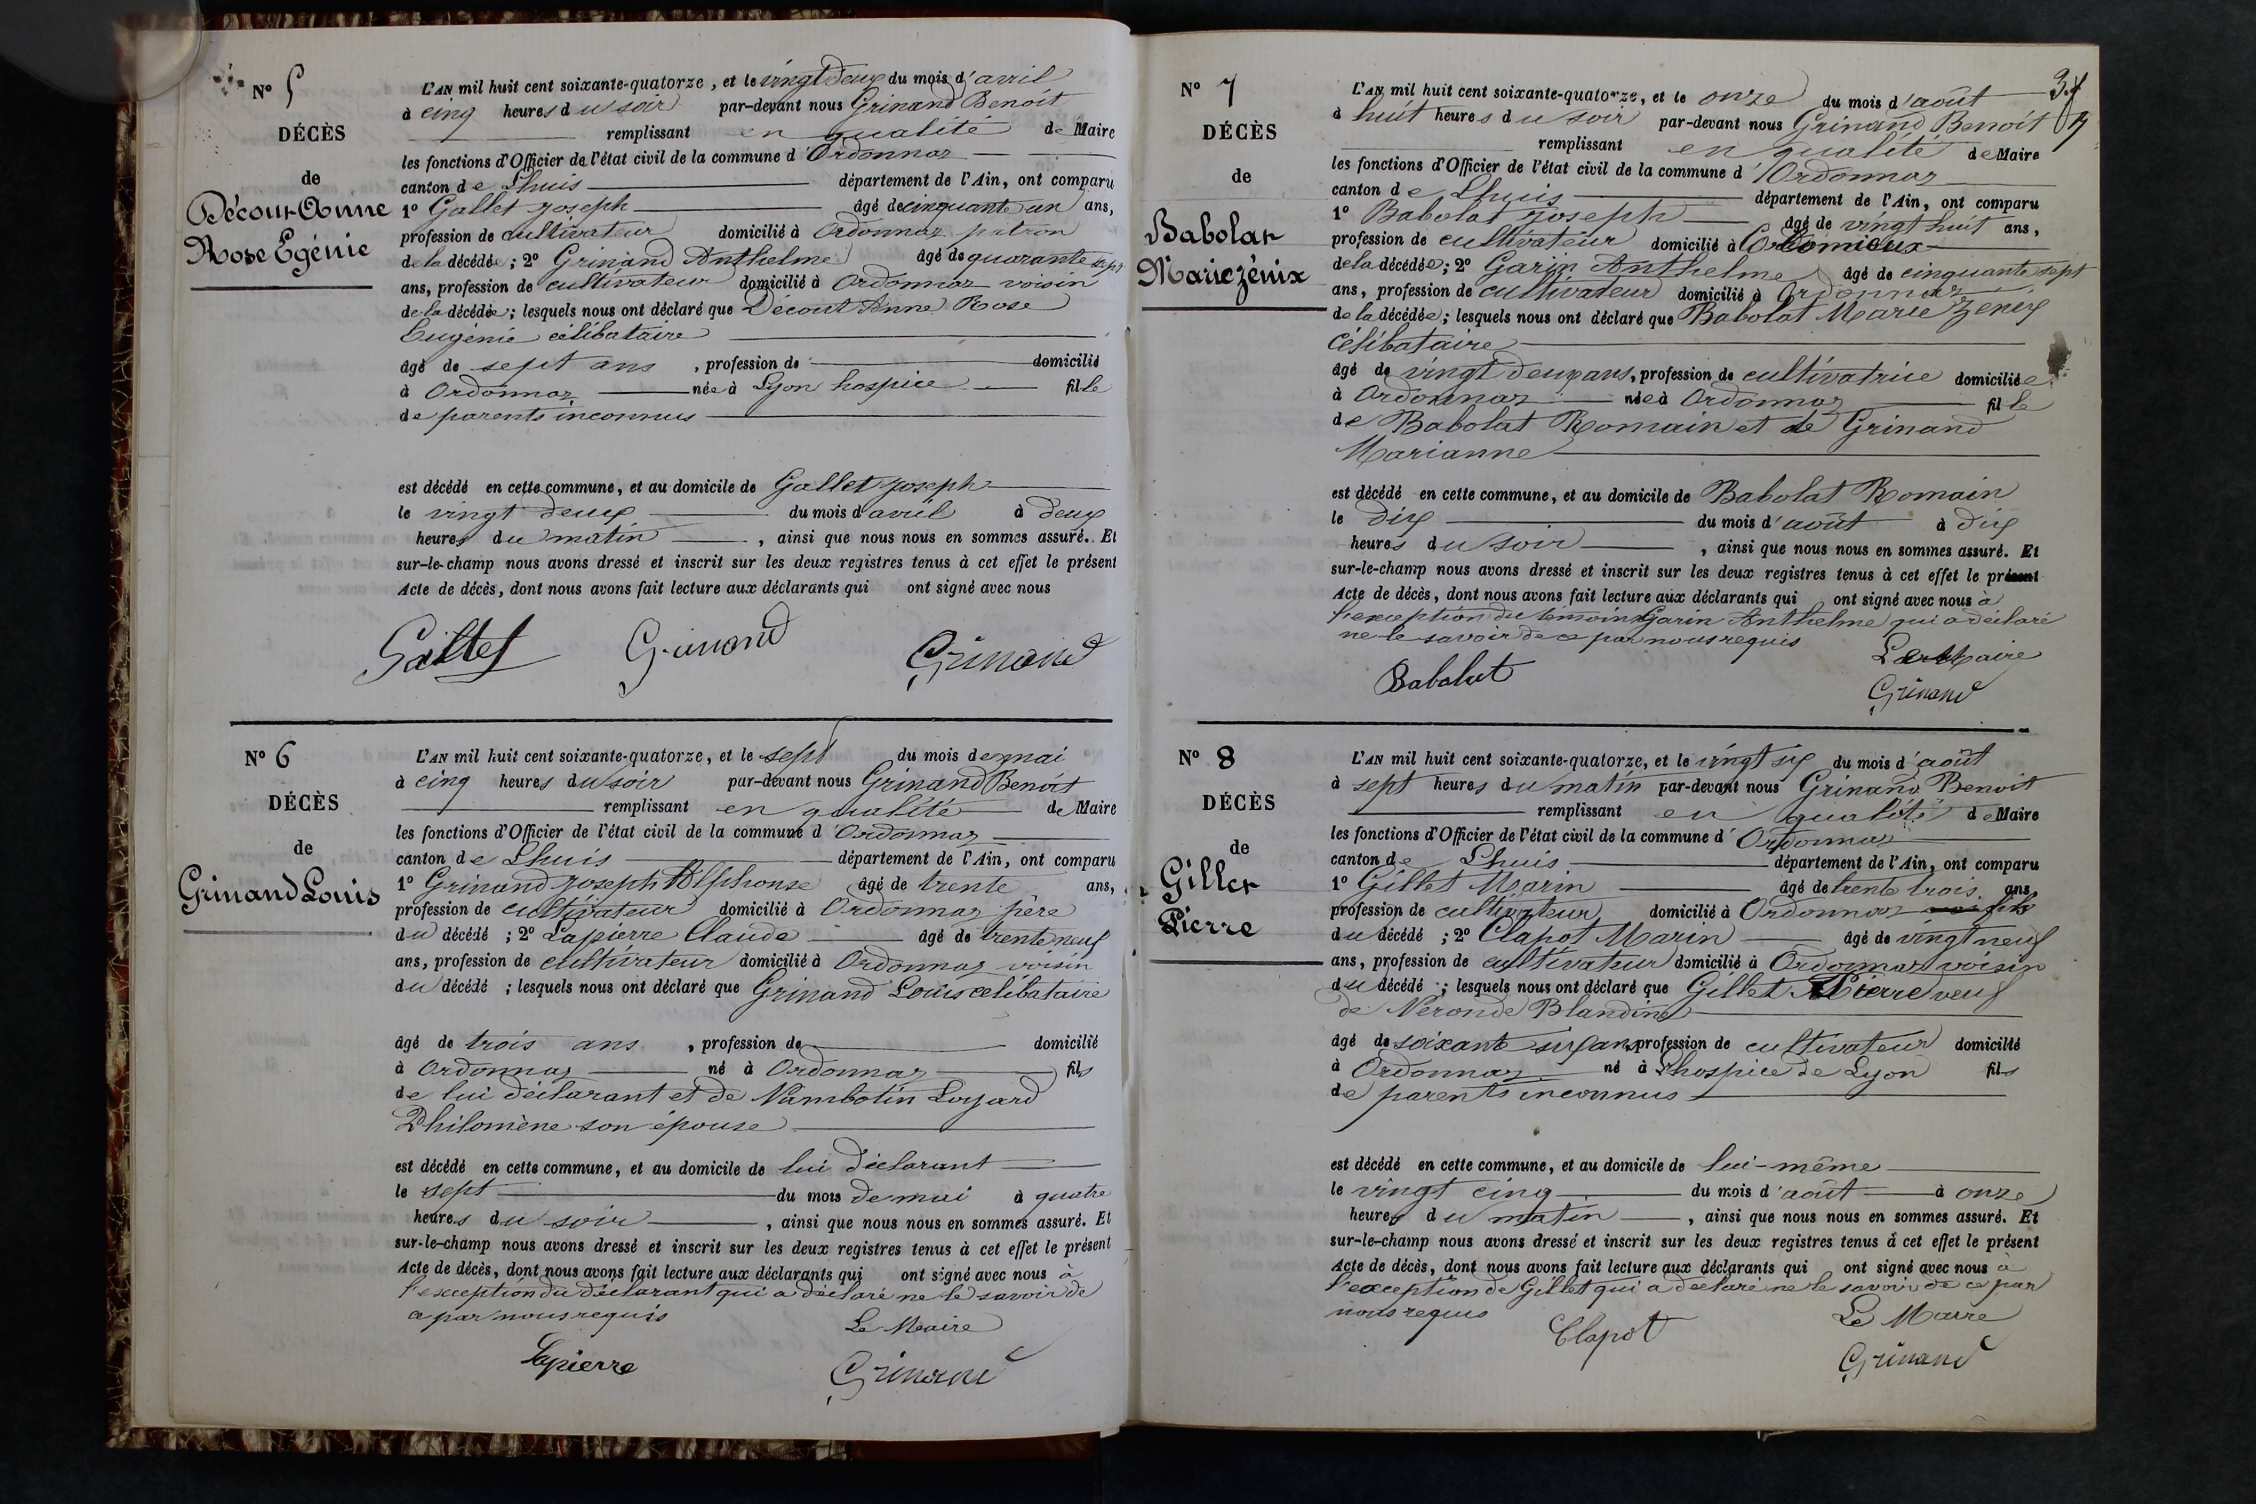 N° 5
DÉCÈS
de
Décout Anne
Rose Egénie
L'AN mil huit cent soixante-quatorze, et le vingt deux du mois d'avril
à cinq heures du soir par-devant nous Grinand Benoit
remplissant en qualité de Maire
les fonctions d'Officier de l'état civil de la commune d'Ordonnaz
canton de Lhuis département de l'Ain, ont comparu
1° Gallet Joseph âgé de cinquante un ans,
profession de cultivateur domicilié à Ordonnaz patron
de la décédée; 2° Grinand Anthelme âgé de quarante sept
ans, profession de cultivateur domicilié à Ordonnaz voisin
de la décédée; lesquels nous ont déclaré que Décout Anne Rose
Eugénie célibataire
âgé de sept ans, profession de domicilié
à Ordonnaz née à Lyon hospice fille
de parents inconnus
est décédé en cette commune, et au domicile de Gallet Joseph
le vingt deux du mois d'avril à deux
heures du matin, ainsi que nous nous en sommes assuré. Et
sur-le-champ nous avons dressé et inscrit sur les deux registres tenus à cet effet le présent
Acte de décès, dont nous avons fait lecture aux déclarants qui ont signé avec nous
Gallet Grinand Grinand
N° 6
DÉCÈS
de
Grinand Louis
L'AN mil huit cent soixante-quatorze, et le sept du mois de mai
à cinq heures du soir par-devant nous Grinand Benoit
remplissant en qualité de Maire
les fonctions d'Officier de l'état civil de la commune d'Ordonnaz
canton de Lhuis département de l'Ain, ont comparu
1° Grinand Joseph Alphonse âgé de trente ans,
profession de cultivateur domicilié à Ordonnaz père
du décédé; 2° Lapierre Claude âgé de trente neuf
ans, profession de cultivateur domicilié à Ordonnaz voisin
du décédé; lesquels nous ont déclaré que Grinand Louis célibataire
âgé de trois ans, profession de domicilié
à Ordonnaz né à Ordonnaz fils
de lui déclarant et de Nambotin Loyard
Philomène son épouse
est décédé en cette commune, et au domicile de lui déclarant
le sept du mois de mai à quatre
heures du soir, ainsi que nous nous en sommes assuré. Et
sur-le-champ nous avons dressé et inscrit sur les deux registres tenus à cet effet le présent
Acte de décès, dont nous avons fait lecture aux déclarants qui ont signé avec nous à
l'exception du déclarant qui a déclaré ne le savoir de
ce par nous requis
Le Maire
Lapierre Grinand
N° 7
DÉCÈS
de
Babolat
Marie zénix
L'AN mil huit cent soixante-quatorze, et le onze du mois d'août
à huit heures du soir par-devant nous Grinand Benoit
remplissant en qualité de Maire
les fonctions d'Officier de l'état civil de la commune d'Ordonnaz
canton de Lhuis département de l'Ain, ont comparu
1° Babolat Joseph âgé de vingt huit ans,
profession de cultivateur domicilié à
de la décédée; 2° Garin Anthelme âgé de cinquante sept
ans, profession de cultivateur domicilié à Ordonnaz
de la décédée; lesquels nous ont déclaré que Babolat Marie zénix
Célibataire
âgé de vingt deux ans, profession de cultivatrice domiciliée
à Ordonnaz née à Ordonnaz fille
de Babolat Romain et de Grinand
Marianne
est décédé en cette commune, et au domicile de Babolat Romain
le dix du mois d'août à dix
heures du soir, ainsi que nous nous en sommes assuré. Et
sur-le-champ nous avons dressé et inscrit sur les deux registres tenus à cet effet le présent
Acte de décès, dont nous avons fait lecture aux déclarants qui ont signé avec nous à
l'exception du témoin Garin Anthelme qui a déclaré
ne le savoir de ce par nous requis
Le Maire
Babolat Grinand
N° 8
DÉCÈS
de
Gillet
Pierre
L'AN mil huit cent soixante-quatorze, et le vingt six du mois d'août
à sept heures du matin par-devant nous Grinand Benoit
remplissant en qualité de Maire
les fonctions d'Officier de l'état civil de la commune d'Ordonnaz
canton de Lhuis département de l'Ain, ont comparu
1° Gillet Marin âgé de trente trois ans
profession de cultivateur domicilié à Ordonnaz fils
du décédé; 2° Clapot Marin âgé de vingt neuf
ans, profession de cultivateur domicilié à Ordonnaz voisin
du décédé; lesquels nous ont déclaré que Gillet Pierre veuf
de Néronde Blandine
âgé de soixante six ans profession de cultivateur domicilié
à Ordonnaz né à Lhospice de Lyon fils
de parents inconnus
est décédé en cette commune, et au domicile de lui-même
le vingt cinq du mois d'août à onze
heures du matin, ainsi que nous nous en sommes assuré. Et
sur-le-champ nous avons dressé et inscrit sur les deux registres tenus à cet effet le présent
Acte de décès, dont nous avons fait lecture aux déclarants qui ont signé avec nous à
l'exception de Gillet qui a déclaré ne le savoir de ce par
nous requis
Le Maire
Clapot
Grinand